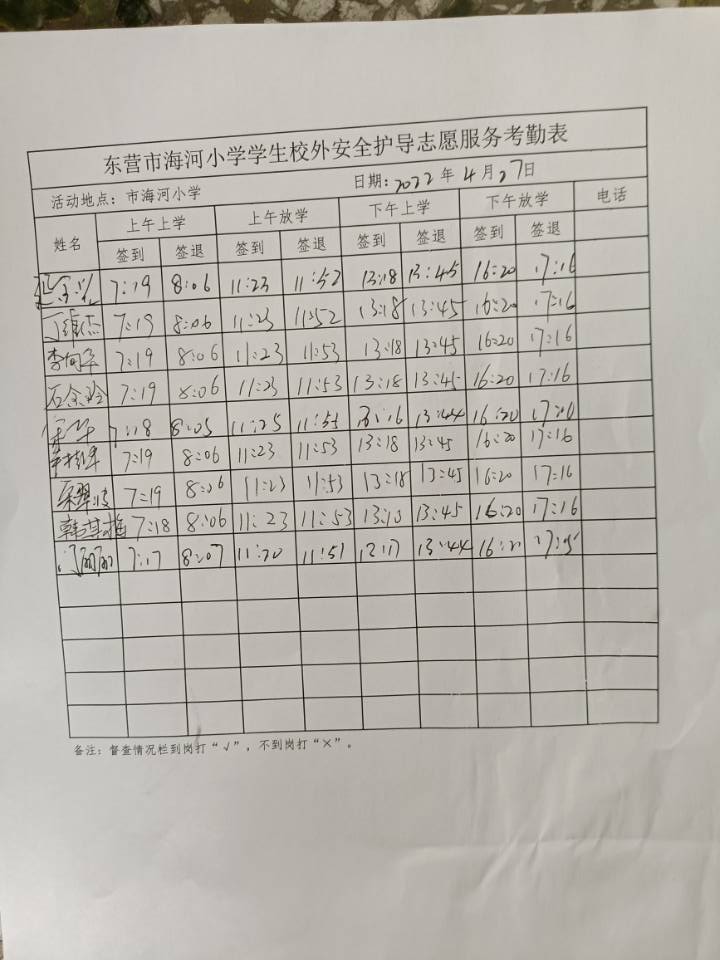 东营市海河小学学生校外安全护导志愿服务考勤表
活动地点：市海河小学 日期：2022年4月27日
姓名 上午上学 上午放学 下午上学 下午放学 电话
签到 签退 签到 签退 签到 签退 签到 签退
7:19 8:06 11:23 11:52 13:18 13:45 16:20 17:16
丁维杰 7:19 8:06 11:23 11:52 13:18 13:45 16:20 17:16
李向华 7:19 8:06 11:23 11:53 13:18 13:45 16:20 17:16
石余玲 7:19 8:06 11:23 11:53 13:18 13:45 16:20 17:16
7:18 8:05 11:25 11:55 13:44 16:20
7:19 8:06 11:23 11:53 13:18 13:45 16:20 17:16
7:19 8:06 11:23 11:53 13:18 13:45 16:20 17:16
韩其梅 7:18 8:06 11:23 11:53 13:10 13:45 16:20 17:16
门丽丽 7:17 8:07 11:20 11:51 13:44
备注：督查情况栏到岗打“√”，不到岗打“×”。